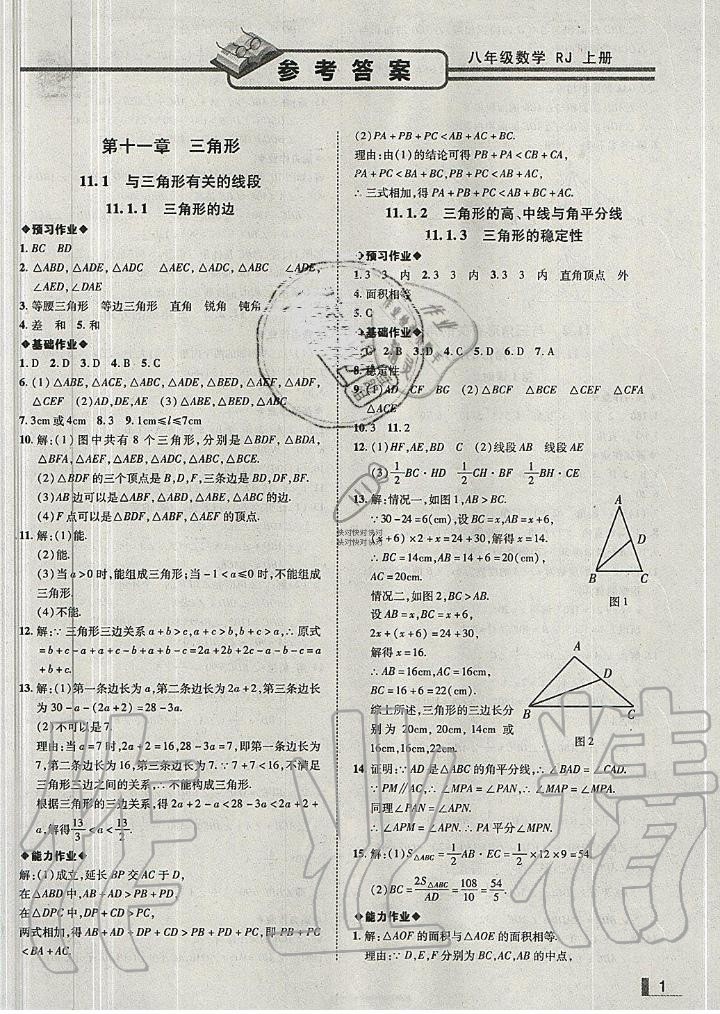 八年级数学 RJ 上册
参考答案
第十一章 三角形
11.1 与三角形有关的线段
11.1.1 三角形的边
◆预习作业◆
1. BC BD
2. △ABD,△ADE,△ADC △AEC,△ADC,△ABC ∠ADE,
∠AED,∠DAE
3. 等腰三角形 等边三角形 直角 锐角 钝角
4. 差 和 5. 和
◆基础作业◆
1. D 2. D 3. D 4. B 5. C
6. (1)△ABE,△ACE,△ABF,△AEF,△ADF,
△CEF (2)AD,DE,AE (3)△ABE,△BCE
7. 3cm或4cm 8. 3 9. 1cm≤l≤7cm
10. 解:(1)图中共有 8 个三角形,分别是△BDF,△BDA,
△BFA,△AEF,△ABE,△ADC,△ABC,△BCE.
(2)△BDF的三个顶点是B,D,F,三条边是BD,DF,BF.
(3)AB边可以是△ABF,△ABD,△ABE,△ABC的边.
(4)F点可以是△ABF,△BDF,△AEF的顶点.
11. 解:(1)能.
(2)能.
(3)当a>0时,能组成三角形;当-1<a≤0时,不能组成
三角形.
(4)不能.
12. 解:∵三角形三边关系a+b>c,a+c>b,b+c>a,∴原式
=b+c-a+c-b+a+b-c=2a+2b+2c-a-b-c=
a+b+c.
13. 解:(1)第一条边长为a,第二条边长为2a+2,第三条边长
为30-a-(2a+2)=28-3a.
(2)不可以是7.
理由:当a=7时,2a+2=16,28-3a=7,即第一条边长为
7,第二条边长为16,第三条边长为7.∵7+7<16,不满足
三角形三边之间的关系,∴不能构成三角形.
根据三角形的三边关系,得2a+2-a<28-3a<2a+2+
a,解得13/3<a<13/2.
◆能力作业◆
解:(1)成立,延长BP交AC于D,
在△ABD中,AB+AD>PB+PD,
在△DPC中,DP+CD>PC,
两式相加,得AB+AD+DP+CD>PB+PD+PC,即PB+PC
<BA+AC.
(2)PA+PB+PC<AB+AC+BC.
理由:由(1)的结论可得PB+PA<CB+CA,
PA+PC<BA+BC,PB+PC<AB+AC,
∴三式相加,得PA+PB+PC<AB+AC+BC.
11.1.2 三角形的高、中线与角平分线
11.1.3 三角形的稳定性
◆预习作业◆
1. 3 3 内 2. 3 3 内 3. 3 3 内 直角顶点 外
4. 面积相等
5. C
◆基础作业◆
2. B 3. D 4. C 5. C 6. D 7. A
8. 稳定性
9. (1)AD CF BC (2)△BCF △BCE △CFA
△ACE
10. 3 11. 2
12. (1)HF,AE,BD C (2)线段AB 线段AE
(3)1/2BC·HD 1/2CH·BF 1/2BH·CF
13. 解:情况一,如图1,AB>BC.
∵30-24=6(cm),设BC=x,AB=x+6,
(x+6)×2+x=24+30,解得x=14.
∴BC=14cm,AB=14+6=20(cm),
AC=20cm.
情况二,如图2,BC>AB.
设AB=x,BC=x+6,
2x+(x+6)=24+30,
解得x=16.
∴AB=16cm,AC=16cm,
BC=22cm.
综上所述,三角形的三边长分
别为20cm,20cm,14cm或
16cm,16cm,22cm.
A
D
B C
图1
A
D
B C
图2
14. 证明:∵AD是△ABC的角平分线,∴∠BAD=∠CAD.
∵PM∥AC,∴∠MPA=∠PAN,∴∠MAP=∠MPA.
同理∠PAM=∠APN.
∴∠APM=∠APN.∴PA平分∠MPN.
15. 解:(1)S△ABC=1/2AB·EC=1/2×12×9=54.
(2)BC=2S△ABC/AD=108/10=54/5.
◆能力作业◆
1. 解:△AOF的面积与△AOE的面积相等.
理由:∵D,E,F分别为BC,AC,AB的中点,
1
快对快对快对
快对快对快对
作业精